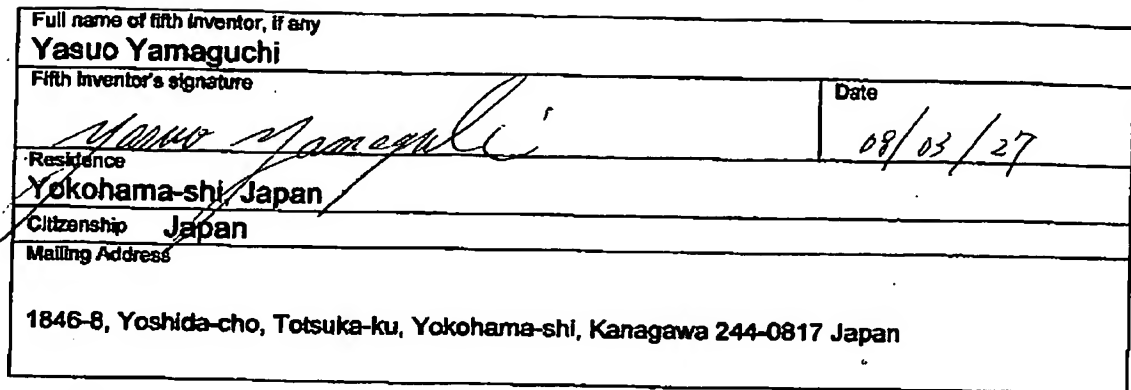 Full name of fifth inventor, if any
Yasuo Yamaguchi
Fifth inventor's signature
Date
Yasuo Yamaguchi
08/03/27
Residence
Yokohama-shi, Japan
Citizenship Japan
Mailing Address
1846-8, Yoshida-cho, Totsuka-ku, Yokohama-shi, Kanagawa 244-0817 Japan